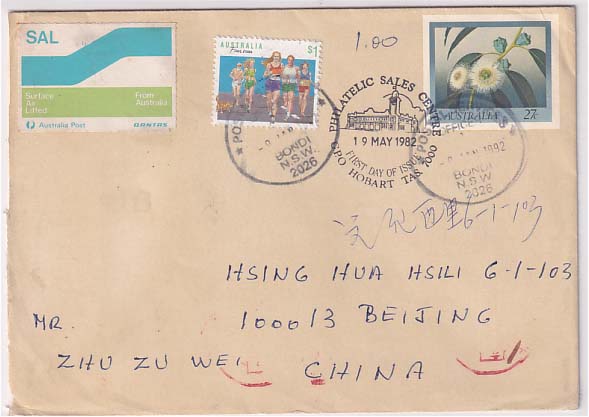 SAL
Surface
Air
Lifted
From
Australia
Australia Post
QANTAS
AUSTRALIA
$1
Fun run
1.00
BONDI
N.S.W.
2026
PHILATELIC SALES CENTRE
19 MAY 1982
FIRST DAY OF ISSUE
GPO HOBART TAS 7000
AUSTRALIA
27c
POST OFFICE
1992
BONDI
N.S.W
2026
6-1-103
HSING HUA HSILI 6-1-103
MR.
100013 BEIJING
ZHU ZU WEI
CHINA